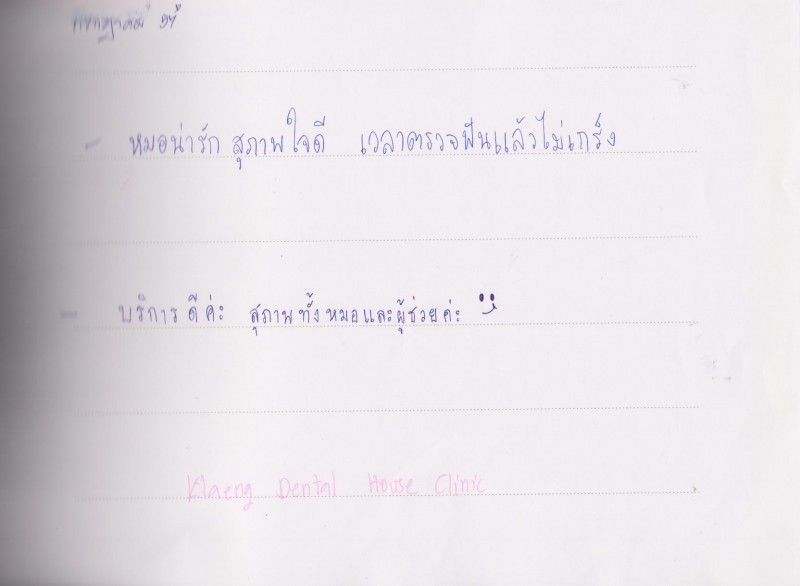 กรกฎาคม 57
- หมอน่ารัก สุภาพใจดี เวลาตรวจฟันแล้วไม่เกร็ง
- บริการดีค่ะ สุภาพทั้งหมอและผู้ช่วยค่ะ
Klaeng Dental House Clinic